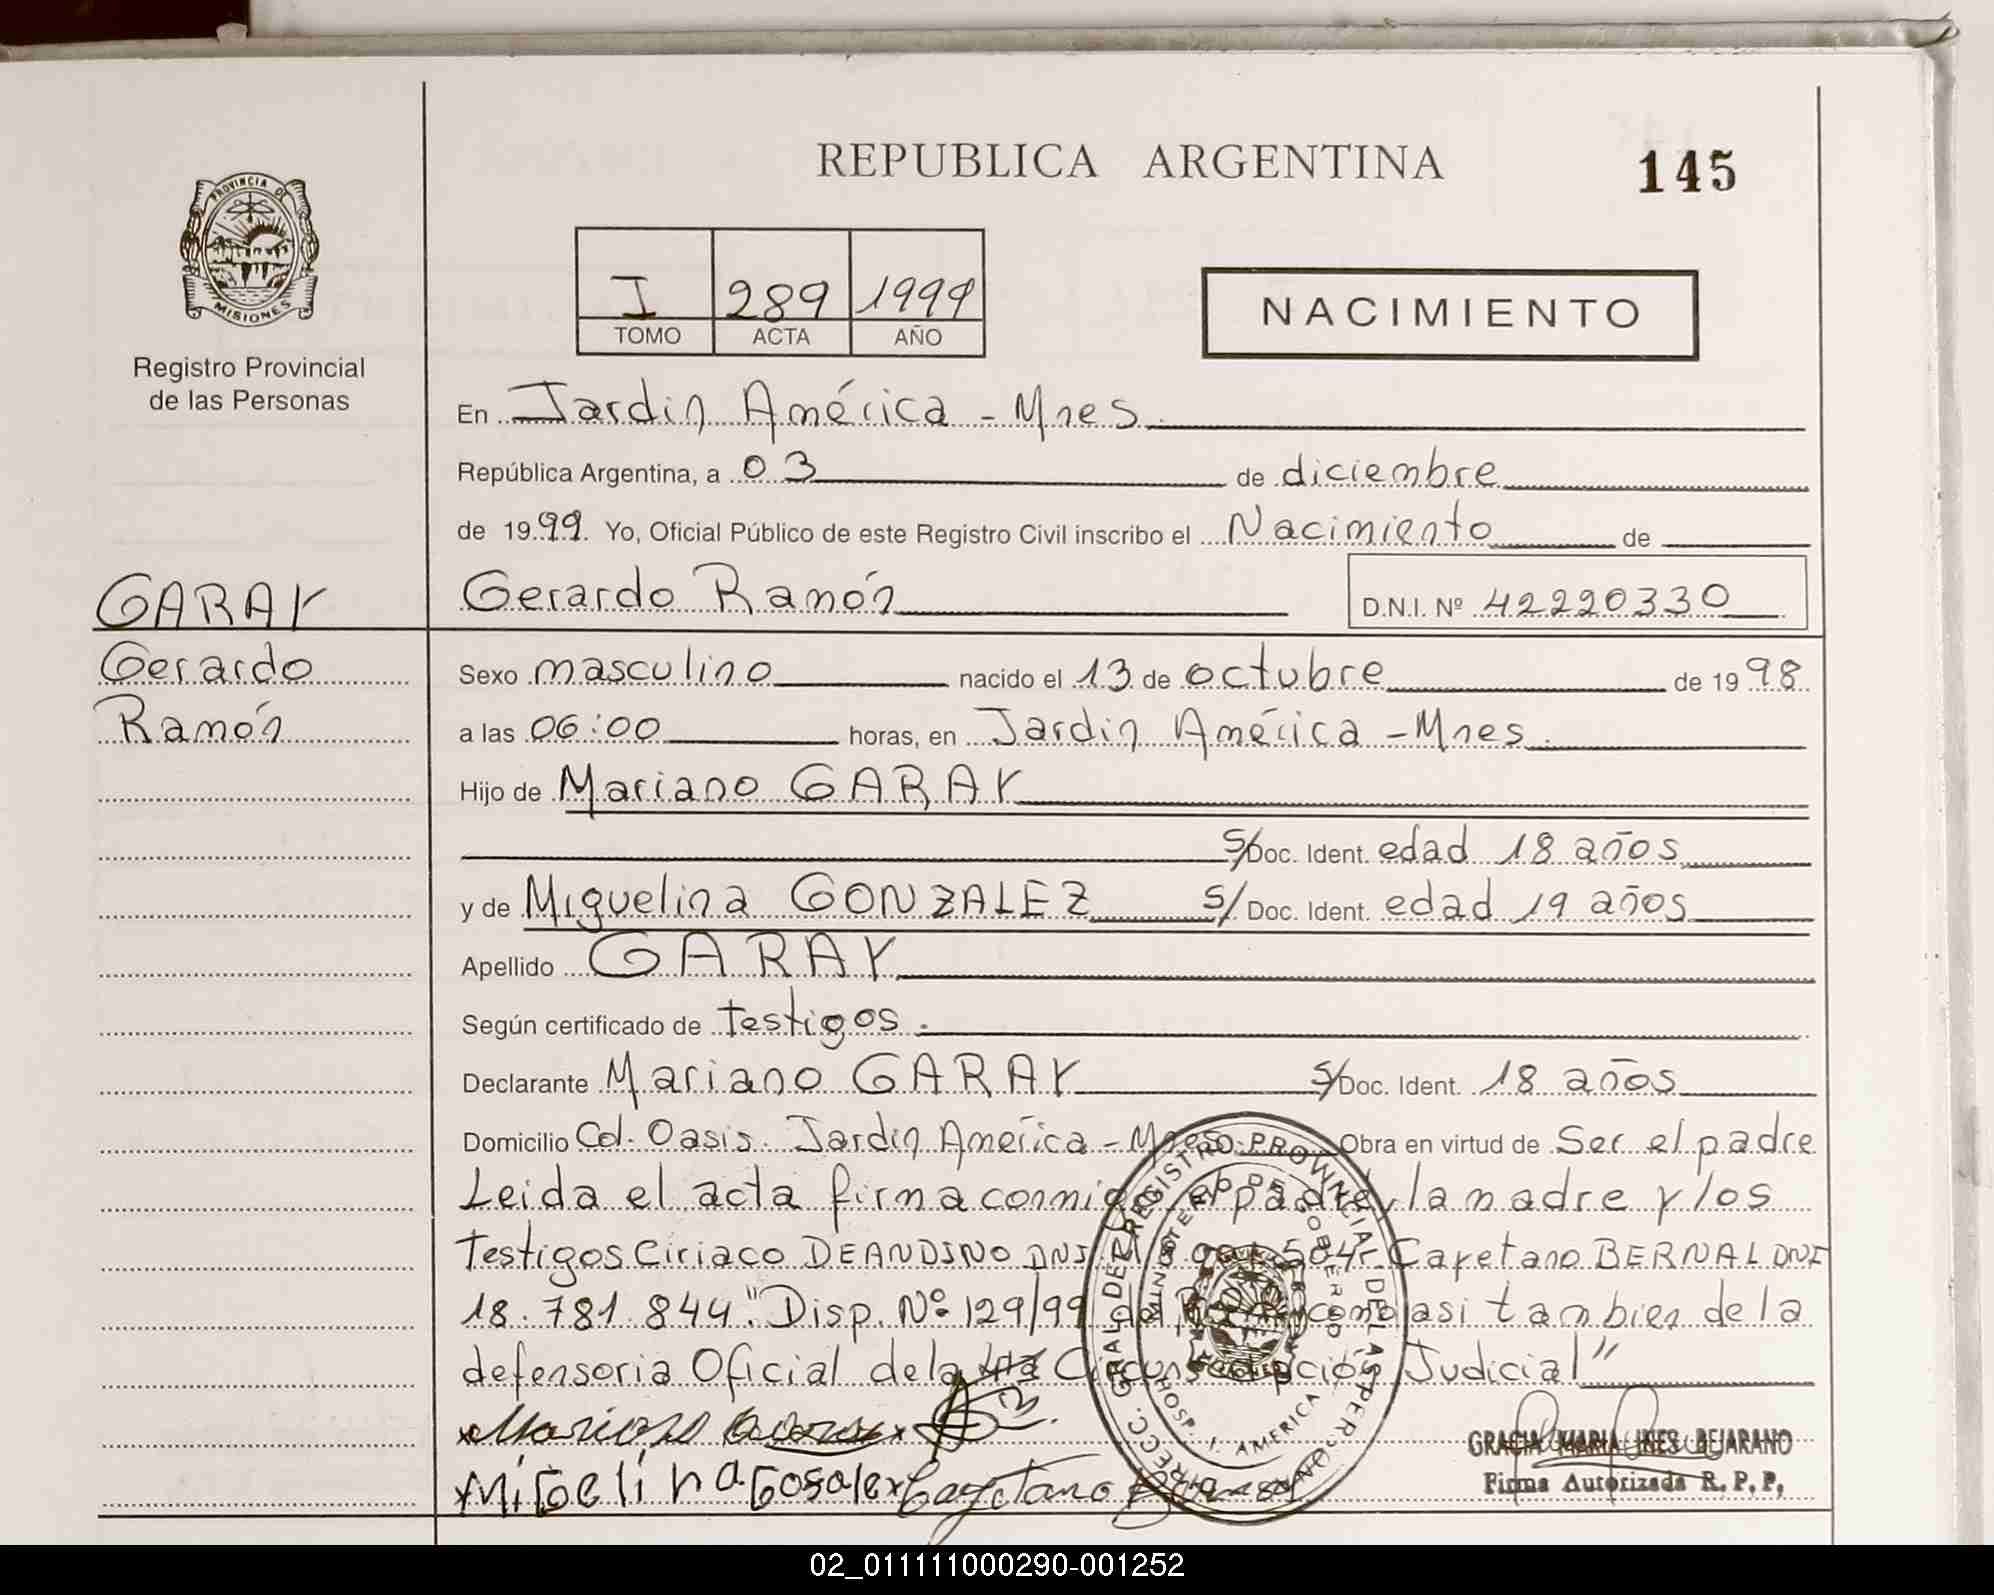 REPUBLICA ARGENTINA
145
PROVINCIA DE
MISIONES
Registro Provincial
de las Personas
I 289 1999
TOMO ACTA AÑO
NACIMIENTO
En Jardin América - Mnes.
República Argentina, a 03 de diciembre
de 1999. Yo, Oficial Público de este Registro Civil inscribo el Nacimiento de
GARAY Gerardo Ramón D.N.I. Nº 42220330
Gerardo
Ramón
Sexo masculino nacido el 13 de octubre de 1998
a las 06:00 horas, en Jardin América - Mnes.
Hijo de Mariano GARAY
S/Doc. Ident. edad 18 años
y de Miguelina GONZALEZ S/ Doc. Ident. edad 19 años
Apellido GARAY
Según certificado de testigos.
Declarante Mariano GARAY S/Doc. Ident. 18 años
Domicilio Col. Oasis. Jardin América - Mnes. Obra en virtud de Ser el padre
Leida el acta firma conmigo el padre, la madre y los
testigos Ciriaco DEANDINO DNI Cayetano BERNAL DNI
18.781.844. "Disp. Nº 129/99 como asi tambien de la
defensoria Oficial de la 4ta Circunscripción Judicial"
Mariano
Cayetano
DIRECC. GRAL DER REGISTRO PROVINCIAL DE LAS PERSONAS
MINISTERIO DE GOBIERNO
HOSP. J. AMERICA
GRACIA MARIA INES BEJARANO
Firma Autorizada R. P. P.
02_011111000290-001252